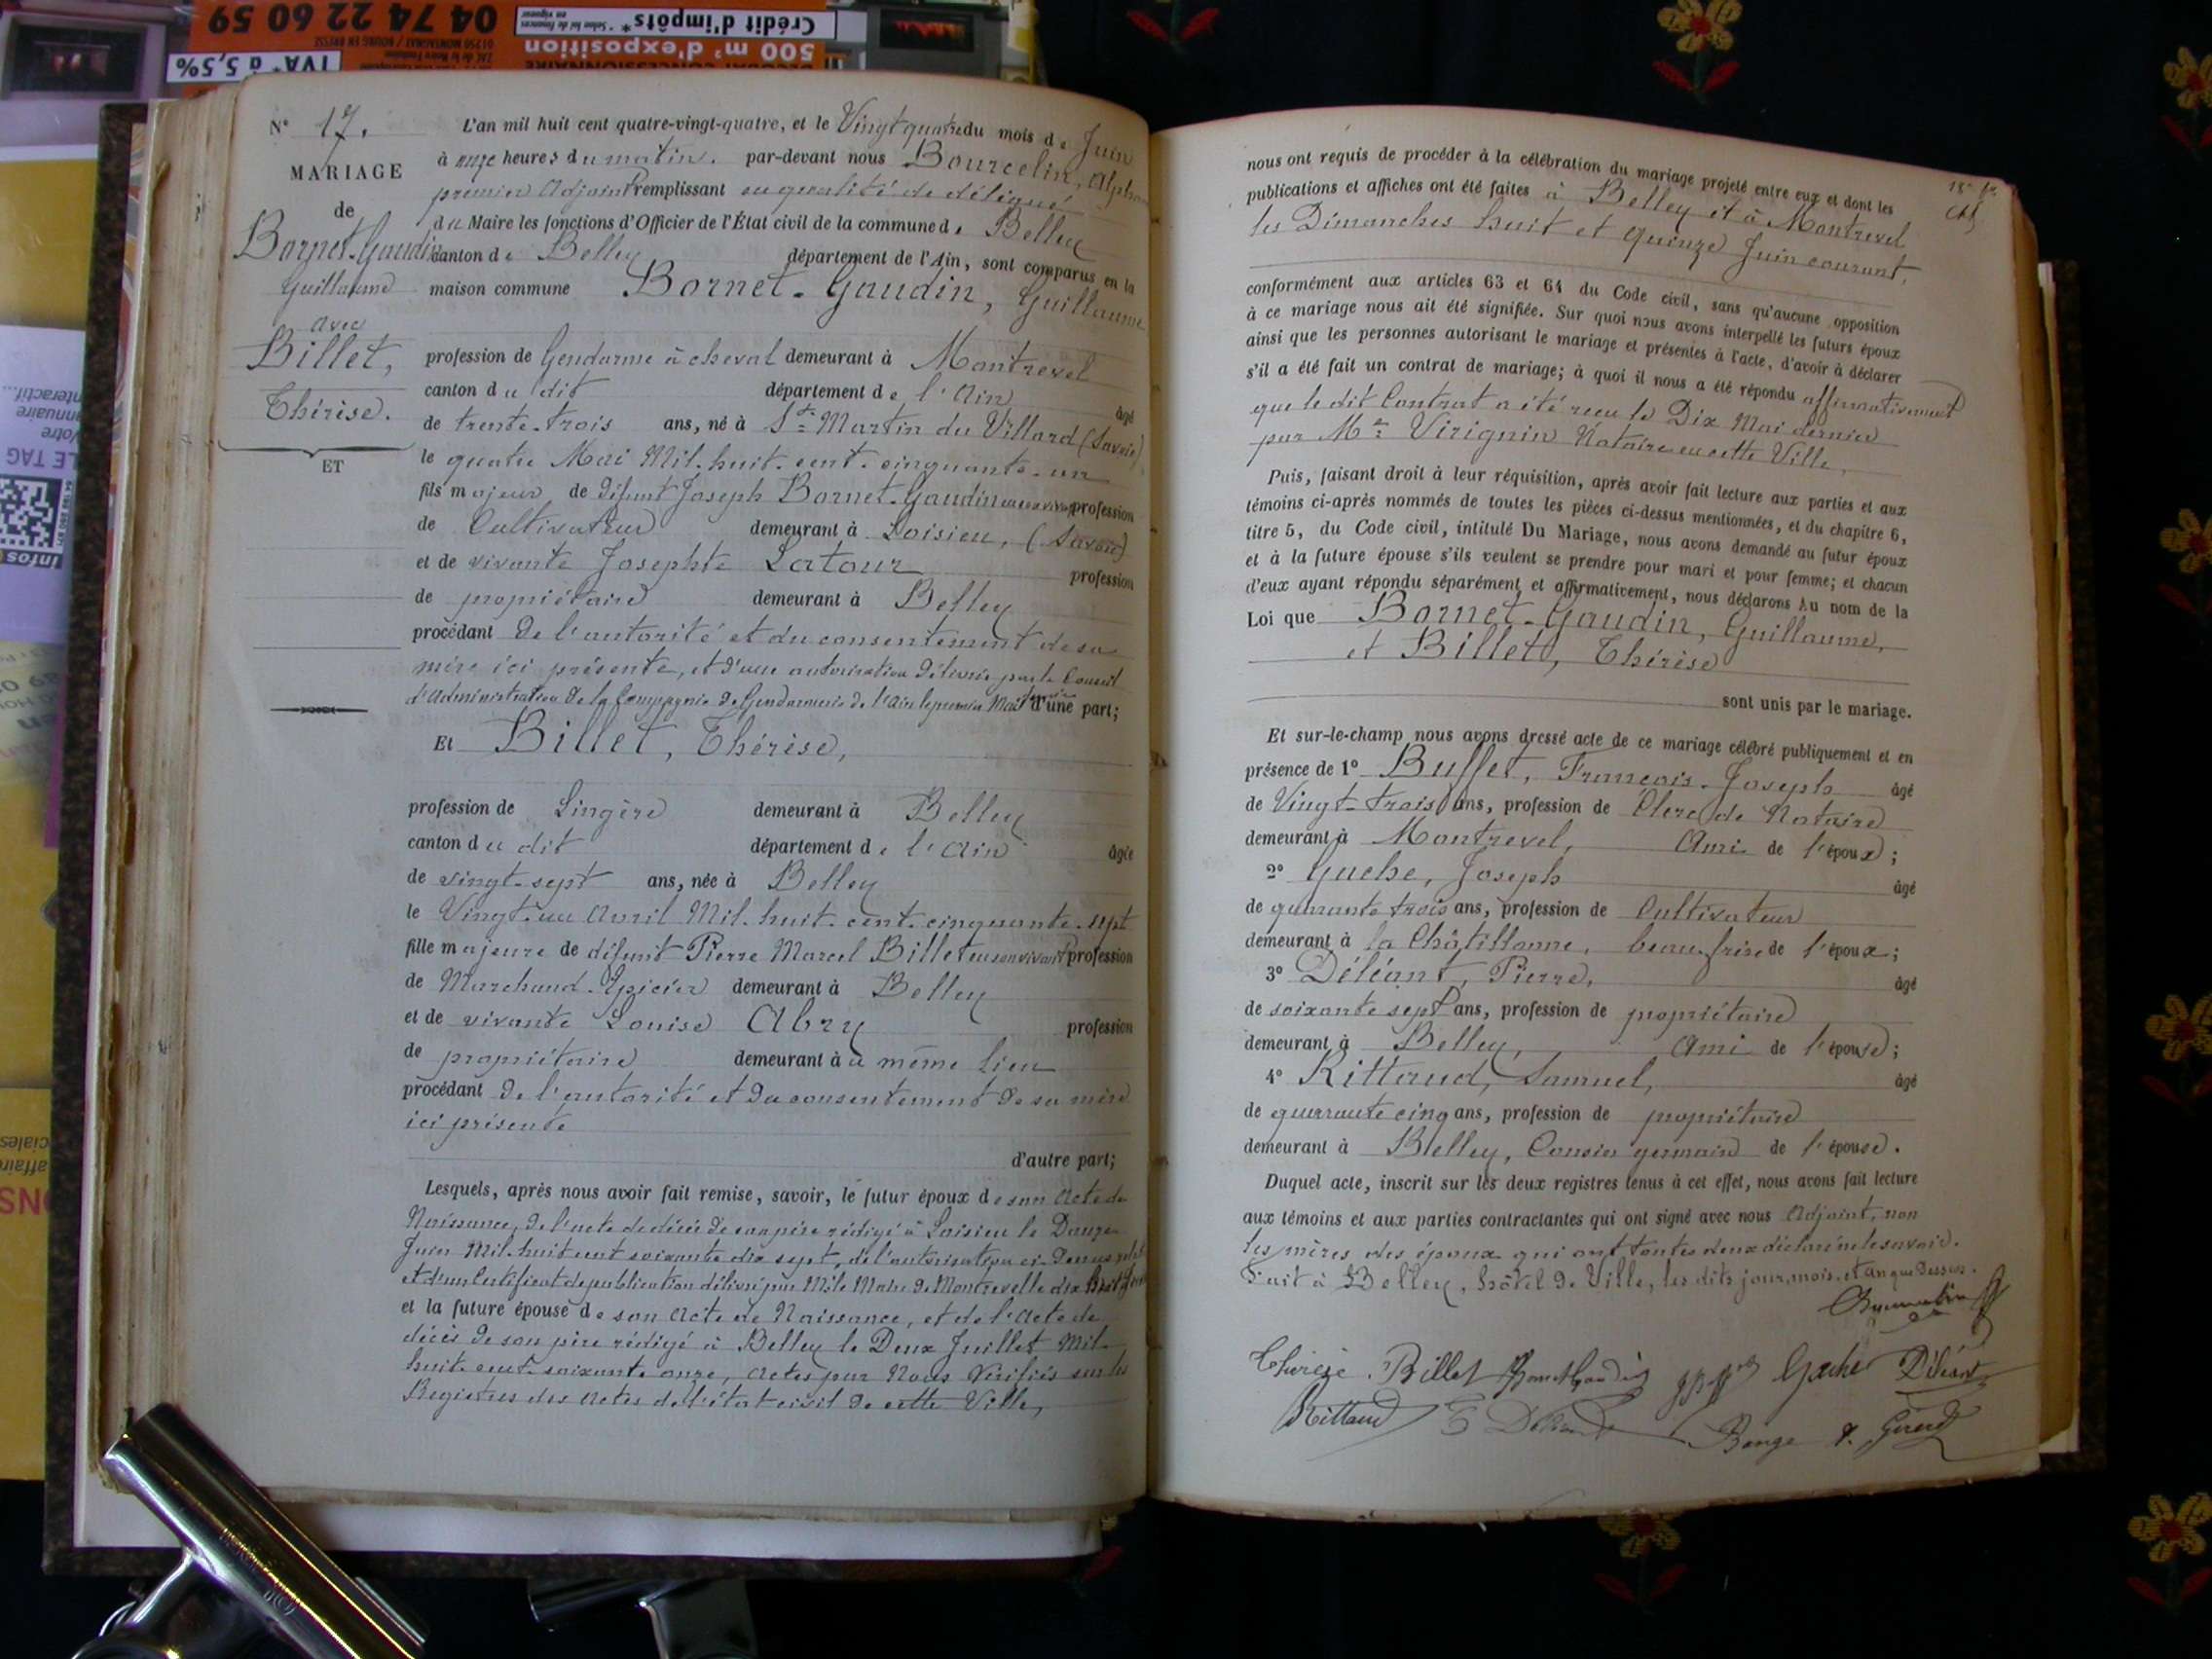 04 74 22 60 59
01250 MONTAGNAT / BOURG EN BRESSE
TVA* à 5,5%
500 m² d'exposition
Crédit d'impôts*
Votre
annuaire
interactif...
LE TAG
Infos
N° 17.
MARIAGE
de
Bornet-Gaudin
Guillaume
avec
Billet,
Thérèse.
ET
L'an mil huit cent quatre-vingt-quatre, et le Vingt quatre du mois de Juin
à onze heures du matin. par-devant nous Bourcelin, Alphonse
premier Adjoint remplissant en qualité de délégué
du Maire les fonctions d'Officier de l'État civil de la commune de Belley
canton de Belley département de l'Ain, sont comparus en la
maison commune Bornet-Gaudin, Guillaume
profession de Gendarme à cheval demeurant à Montrevel
canton du dit département de l'Ain âgé
de trente-trois ans, né à St Martin du Villard (Savoie)
le quatre Mai Mil-huit-cent-cinquante-un
fils majeur de défunt Joseph Bornet-Gaudin en son vivant profession
de Cultivateur demeurant à Loisieu, (Savoie)
et de vivante Josephte Latour profession
de propriétaire demeurant à Belley
procédant de l'autorité et du consentement de sa
mère ici présente, et d'une autorisation délivrée par le Conseil
d'Administration de la Compagnie de Gendarmerie de l'Ain le premier Mai dernier d'une part;
Et Billet, Thérèse,
profession de Lingère demeurant à Belley
canton du dit département de l'Ain âgée
de vingt-sept ans, née à Belley
le Vingt-un Avril Mil-huit-cent-cinquante-sept
fille majeure de défunt Pierre Marcel Billet en son vivant profession
de Marchand-Epicier demeurant à Belley
et de vivante Louise Abry profession
de propriétaire demeurant à à même lieu
procédant de l'autorité et du consentement de sa mère
ici présente
d'autre part;
Lesquels, après nous avoir fait remise, savoir, le futur époux de son Acte de
Naissance, de l'acte de décès de son père rédigé à Loisieu le Douze
Juin Mil-huit-cent soixante dix sept, de l'autorisation ci-dessus
et d'un Certificat de publication délivré par Mr le Maire de Montrevel le dix huit Juin
et la future épouse de son Acte de Naissance, et de l'Acte de
décès de son père rédigé à Belley le Deux Juillet Mil-
huit-cent-soixante-onze, Actes par Nous Vérifiés sur les
Registres des Actes de l'état civil de cette Ville,
nous ont requis de procéder à la célébration du mariage projeté entre eux et dont les
publications et affiches ont été faites à Belley et à Montrevel
les Dimanches huit et quinze Juin courant,
conformément aux articles 63 et 64 du Code civil, sans qu'aucune opposition
à ce mariage nous ait été signifiée. Sur quoi nous avons interpellé les futurs époux
ainsi que les personnes autorisant le mariage et présentes à l'acte, d'avoir à déclarer
s'il a été fait un contrat de mariage; à quoi il nous a été répondu affirmativement
que le dit Contrat a été reçu le Dix Mai dernier
par Me Virignin Notaire en cette Ville,
Puis, faisant droit à leur réquisition, après avoir fait lecture aux parties et aux
témoins ci-après nommés de toutes les pièces ci-dessus mentionnées, et du chapitre 6,
titre 5, du Code civil, intitulé Du Mariage, nous avons demandé au futur époux
et à la future épouse s'ils veulent se prendre pour mari et pour femme; et chacun
d'eux ayant répondu séparément et affirmativement, nous déclarons Au nom de la
Loi que Bornet-Gaudin, Guillaume,
et Billet, Thérèse
sont unis par le mariage.
Et sur-le-champ nous avons dressé acte de ce mariage célébré publiquement et en
présence de 1° Buffet, François-Joseph âgé
de Vingt-trois ans, profession de Clerc de Notaire
demeurant à Montrevel, Ami de l'époux;
2° Gache, Joseph âgé
de quarante trois ans, profession de Cultivateur
demeurant à la Châtillonne, beau-frère de l'époux;
3° Déléant, Pierre, âgé
de soixante sept ans, profession de propriétaire
demeurant à Belley, Ami de l'épouse;
4° Rittaud, Samuel, âgé
de quarante cinq ans, profession de propriétaire
demeurant à Belley, Cousin germain de l'épouse.
Duquel acte, inscrit sur les deux registres tenus à cet effet, nous avons fait lecture
aux témoins et aux parties contractantes qui ont signé avec nous Adjoint, non
les mères des époux qui ont toutes deux déclaré ne le savoir.
Fait à Belley, hôtel de Ville, les dits jour, mois, et an que dessus.
Thérèse Billet Bornet Gaudin Gache Déléant
Rittaud Bonge Girerd